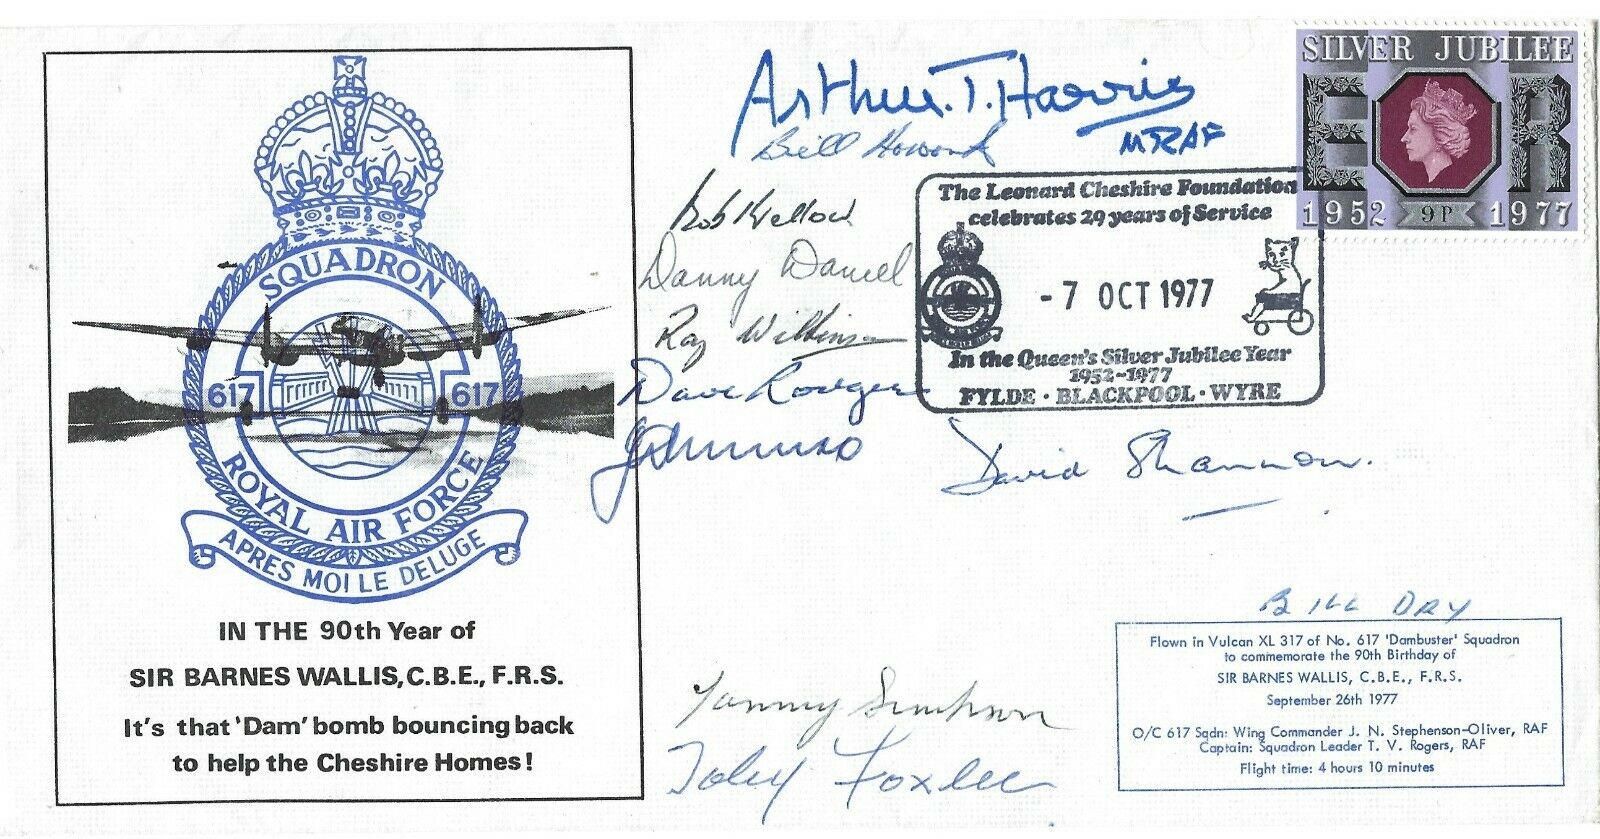 SQUADRON
617 617
ROYAL AIR FORCE
APRES MOI LE DELUGE
IN THE 90th Year of
SIR BARNES WALLIS, C.B.E., F.R.S.
It's that 'Dam' bomb bouncing back
to help the Cheshire Homes!
Arthur. T. Harris
MRAF
Bill Howarth
Bob Kellow
Danny Daniel
Ray Wilkinson
Dave Rodger
J L Munro
David Shannon.
SILVER JUBILEE
E R
1952 9P 1977
The Leonard Cheshire Foundation
celebrates 29 years of Service
-7 OCT 1977
In the Queen's Silver Jubilee Year
1952-1977
FYLDE · BLACKPOOL · WYRE
BILL DRY
Flown in Vulcan XL 317 of No. 617 'Dambuster' Squadron
to commemorate the 90th Birthday of
SIR BARNES WALLIS, C.B.E., F.R.S.
September 26th 1977
O/C 617 Sqdn: Wing Commander J. N. Stephenson-Oliver, RAF
Captain: Squadron Leader T. V. Rogers, RAF
Flight time: 4 hours 10 minutes
Tammy Simpson
Toby Foxlee